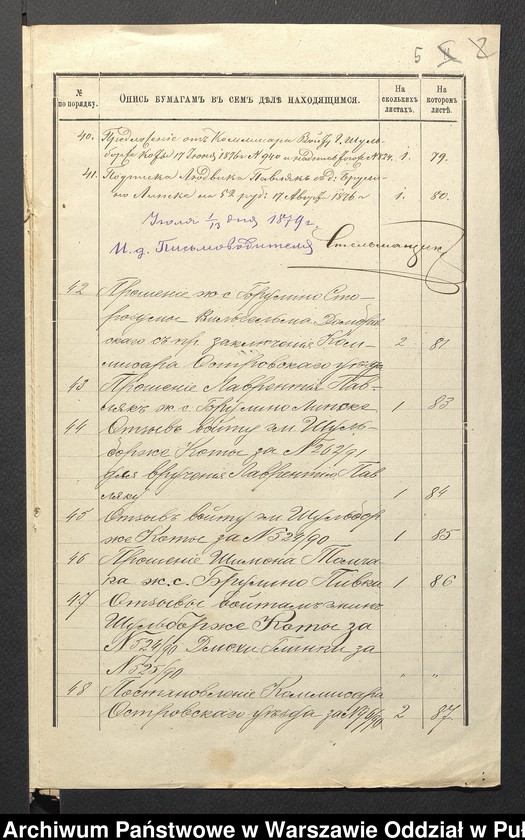 5 2
№ по порядку. Опись бумагамъ въ семъ дѣлѣ находящимся. На сколькихъ листахъ. На которомъ листѣ.
40. Предложеніе отъ Коммисара Войту г. Шуль-
борже Коты 17 Іюня 1876 г № 940 1. 79.
41. Подписка Людвика Павлякъ обѣ: Брули-
но Липске на 52 руб: 17 Августа 1876 г 1. 80.
Іюля 1/13 дня 1879 г.
И. д. Письмоводителя
42 Прошеніе ж. с Брулино Ста-
Вильгельма
скаго съ пр. заключенія Ком-
мисара Островскаго уѣзда 2 81
43 Прошеніе Лаврентія Пав-
лякъ ж. с Брулино Липске 1 83
44 Отзывъ войту гм. Шуль-
борже Коты за № 262/91
для врученія Лаврентію Пав
ляку 1 84
45 Отзывъ войту гм. Шульбор
же Коты за № 524/90 1 85
46 Прошеніе Шимона Томча-
ка ж. с. Брулино Пивки 1 86
47 Отзывы войтамъ гминъ
Шульборже Коты за
№ 524/90 Дмохи Глинки за
№ 525/90 " "
48 Постановленіе Коммисара
Островскаго уѣзда за № 2 87
Archiwum Państwowe w Warszawie Oddział w Puł